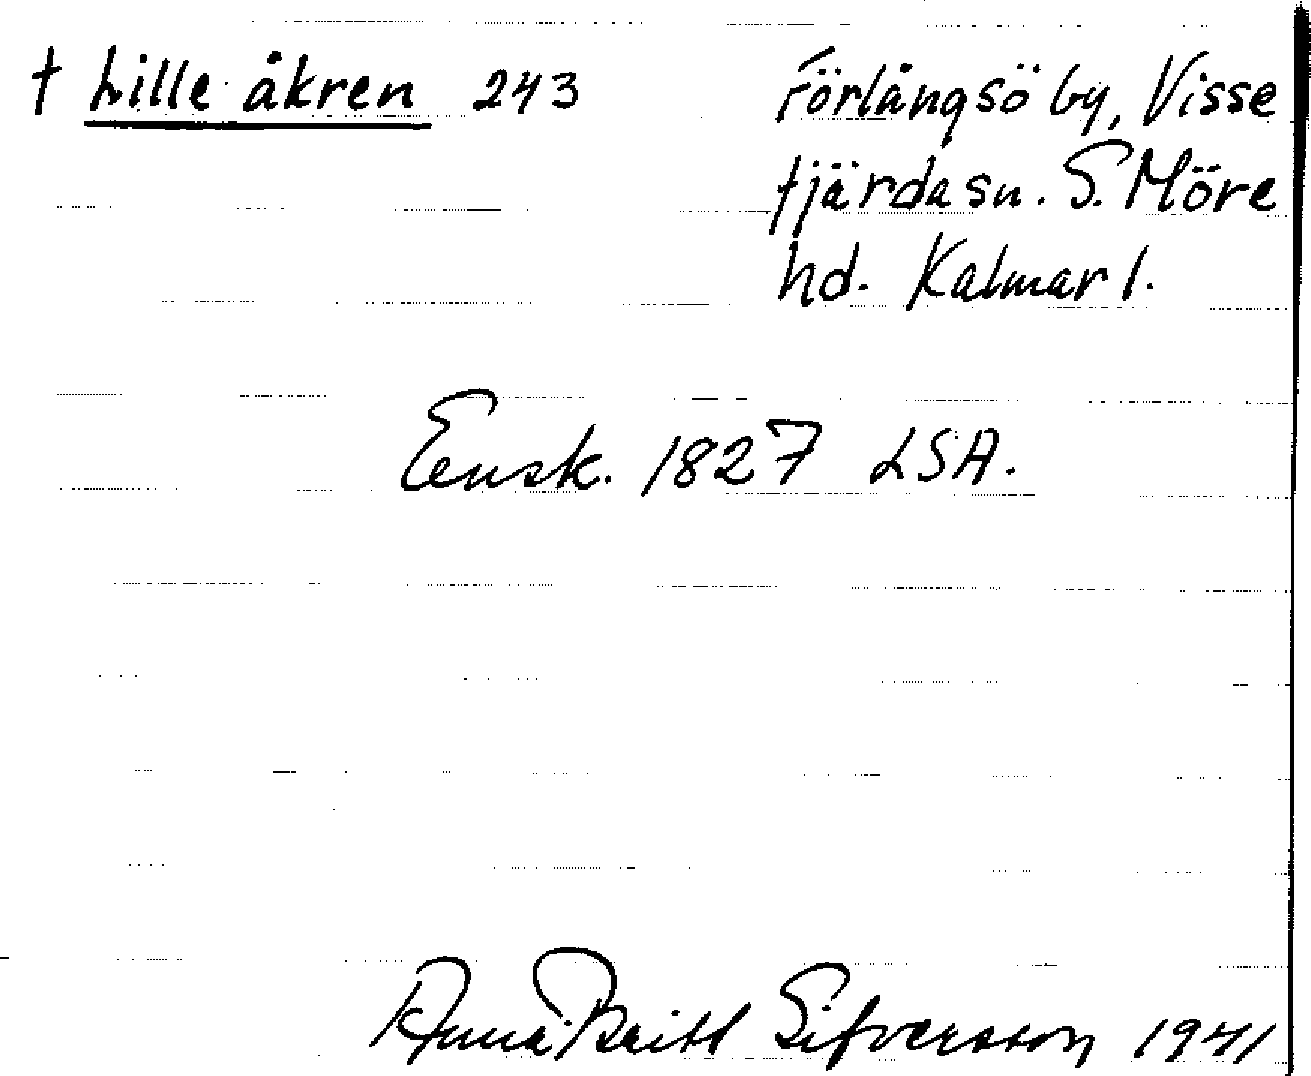 † Lille åkren 243
Förlångsö by, Visse
fjärda sn. S. Möre
hd. Kalmar l.
Ensk. 1827 LSA.
Anna-Britt Sifversson 1941